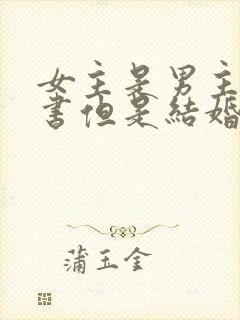 女主是男主
書但是結婚
蒲玉金